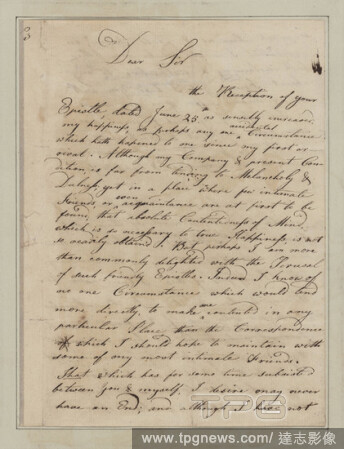 3
Dear Sir
the Reception of your
Epistle, dated June 25th as much increased
my happiness, as perhaps any one accidental Circumstance
which hath happened to me since my first ar-
rival. Although my Company & present Con-
dition is far from tending to Melancholy &
Dulness, yet in a place where few intimate
Friends, or even acquaintance are at first to be
found, that absolute Contentedness of Mind,
which is so necessary to true Happiness, is not
so easily attained. But perhaps I am more
than commonly delighted with the Perusal
of such friendly Epistles. Indeed I know of
no one Circumstance which would tend
more directly to make me contented in any
particular Place than the Correspondence
which I should hope to maintain with
some of my most intimate Friends.
That which has for some time subsisted
between you & myself, I desire may never
have an End; and although I have not
TPG
www.tpgnews.com | 達志影像